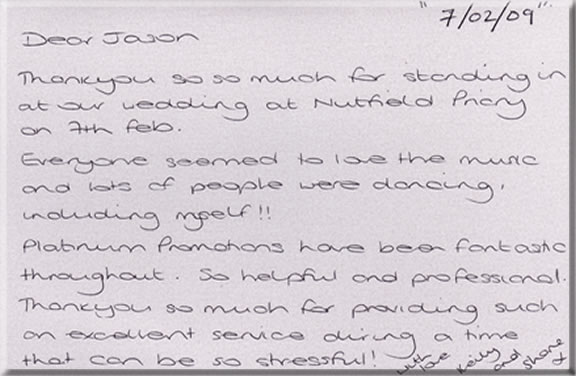 "7/02/09"
Dear Jason
Thankyou so so much for standing in
at our wedding at Nutfield Priory
on 7th Feb.
Everyone seemed to love the music
and lots of people were dancing,
including myself!!
Platinum Promotions have been fantastic
throughout. So helpful and professional.
Thankyou so much for providing such
an excellent service during a time
that can be so stressful!
with love
Kelly and Shane
x